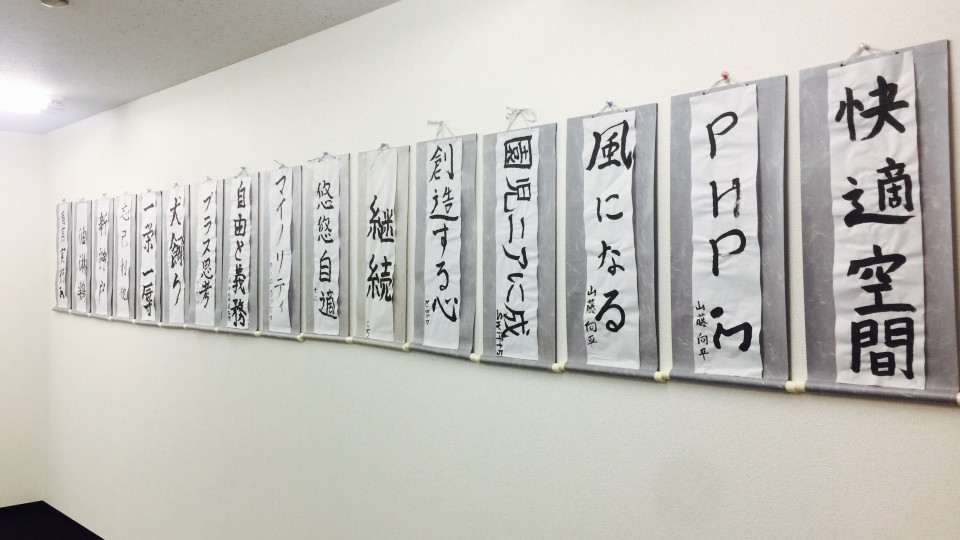 快適空間
PHP
山藤向平
風になる
山藤向平
園児ニアに成
創造する心
継続
悠悠自適
マイノリティ
自由と義務
プラス思考
一栄一辱
忘己利他
油淋鶏